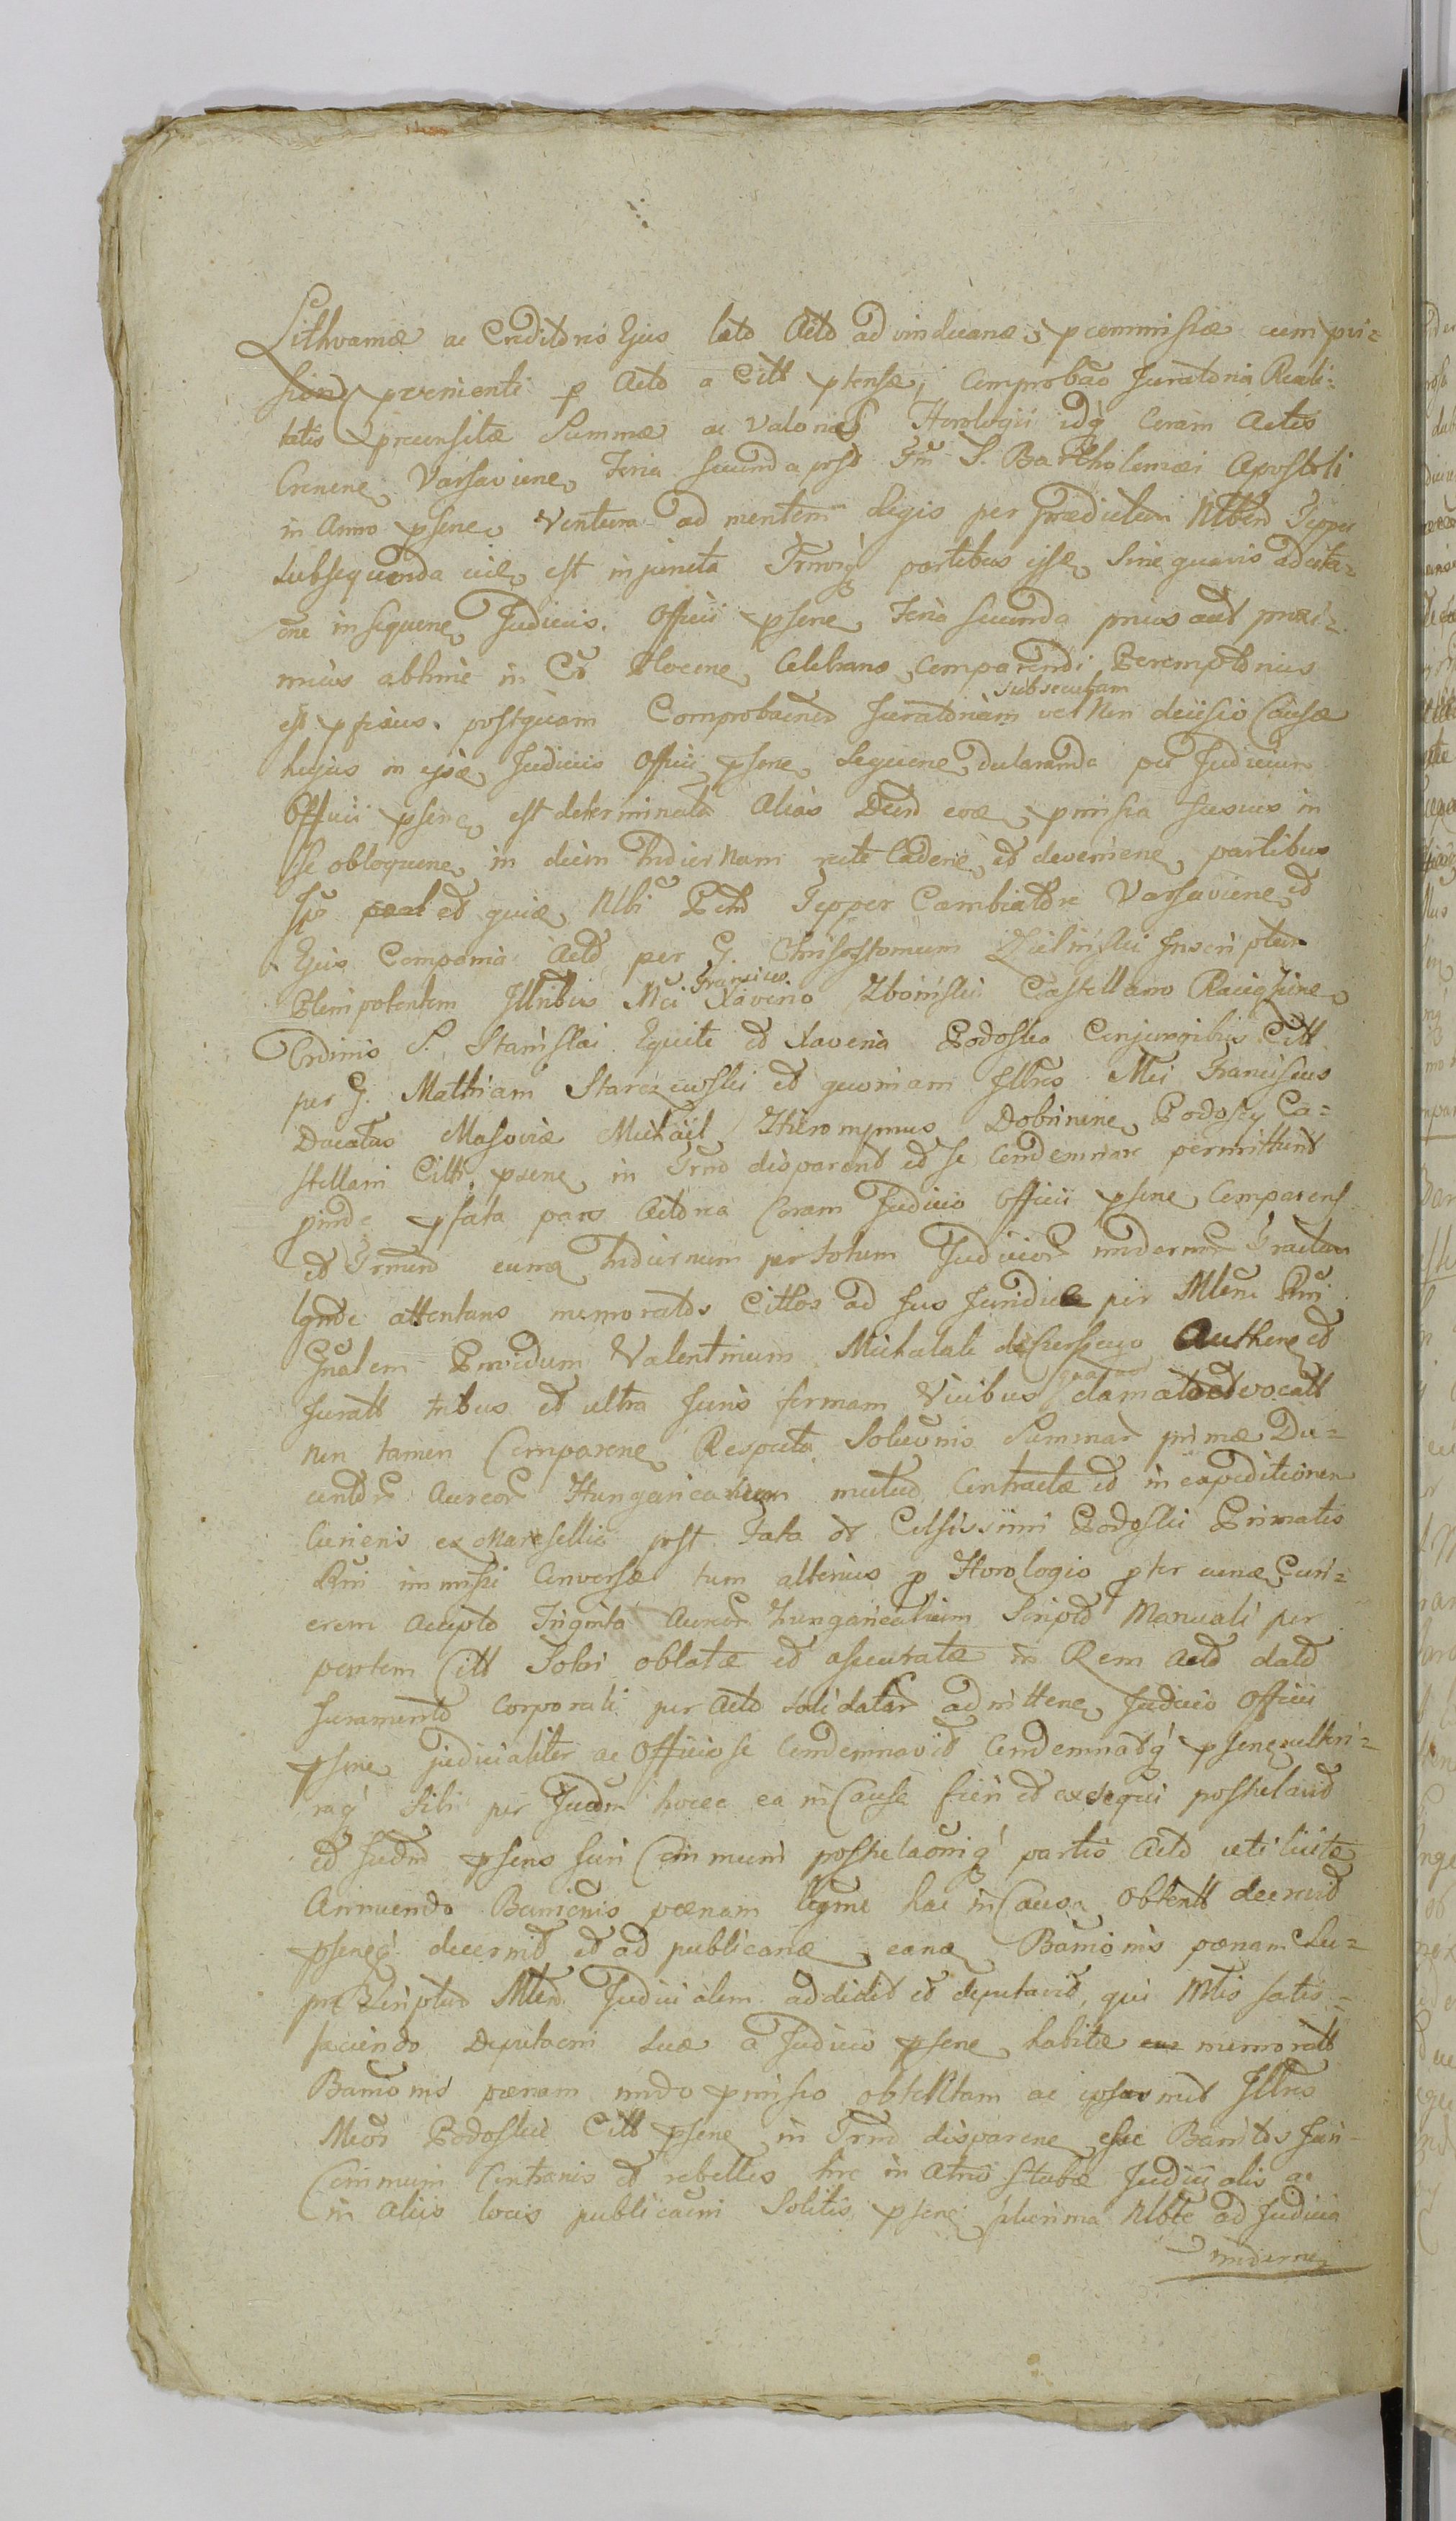 Lithvaniæ ac Creditoris Ejus lato Acto ad vindicanæ pcommissiæ cum pvi=
sione pvenienti p Acto a Citt ptensæ, Comprobao Juratoria Reali=
tatis precensitæ Summæ ac valoris Horologii idq Coram Actis
Crenene Varsaviene Feria Secunda post Fm S. Bartholomæi Apostoli
in Anno psene ventura ad mentem Legis per prædictum Nlbem Tepper
Subsequenda est injuncta Trmvq partibus isse Sine quavis adcita=
one insequene Judiciis Officii psene Feria Secunda prius aut proxi=
mius abhinc in Cr Plocene Celebrans Comparendi Peremptorius
est pfixus. postquam Comprobaonem Juratoriam subsecutam vel Non decisio Causæ
hujus in ipsæ Judiciis Officii psene Sequene declaranda per Judicium
Officii psene est determinata Alias Decr pmissa Susius in
se obloquene in diem hodiernam rite Cadene et deveniene partibus
et quia Nlbi Petro Tepper Cambiatore Varsaviene et
Ejus Compania Acto per G. Chrisostomum Zielinski Inscriptum
Plenipotentem Illribus Mci Francisco Xaverio Zboinski Castellano Raciąsine
Ordinis S. Stanislai Equite et Xaveria Podoska Conjungibus Citt
per G. Mathiam Starczewski et quoniam Illres Mci Franciscus
Ducatus Masoviæ Michael Hieronymus Dobrinene Podoscy Ca=
stellani Citti psene in Trmo disparent et se Condemnare permittunt
pinde pfata pars Actorea Coram Judicio Officii psene Comparens
et Trmum eumq hodiernum per totum Judicior modernor Tractum
lgme attentans memoratos Cittos ad Jus Juridice per Mlem Rni
Gnalem Providum Valentinum Michalak Authene et
Juratt tribus et ultra Juris formam Vicibus clamatos et vocatt
non tamen Comparene Respectu Soluonis Summar primæ Du=
centor Aureor Hungaricalium mutuo Contractæ et in expeditionem
Curieris ex Maresellii post Fata or Celsissimi Podoski Primatis
Rni immissi Conversæ tum alterius p Horologio pter eunæ Curi=
erem accepto Triginta Aureor Hungaricalium Scripto Manuali per
partem Citt Solvi oblatæ et assecuratæ in Rem Acto dato
Juramento Corporali per Acto Solidatar admittene Judicio Officii
psene judicialiter ac Officiose Condemnavit Condemnatq psene ulteri=
raq Sibi per Judm hocce ea in Causa fieri et exsequi postulavit
et Judm psens Juri Communi postulaoniq partis Acto uti licitæ
Annuendo Banionis pœnam lgme hac in Causa obtentt decrevit
pseneq decernit et ad publicanæ eanæ Banionis pœnam Su=
pra Scriptum Mlem Judicialem addidit et deputavit, qui Mtis satis=
faciendo Deputaoni Suæ a Judicio psene habitæ memoratt
Banionis pœnam modo pmisso obtentam ac ipsosmet Illres
Mcos Podoskie Citt psene in Trmo disparene esse Banitos Juri
Communi Contrarios et rebelles hic in Atrio Stubæ Judicialis ac
in aliis locis publicaoni Solitis psene plurima Nlbte ad Judicia
moderne